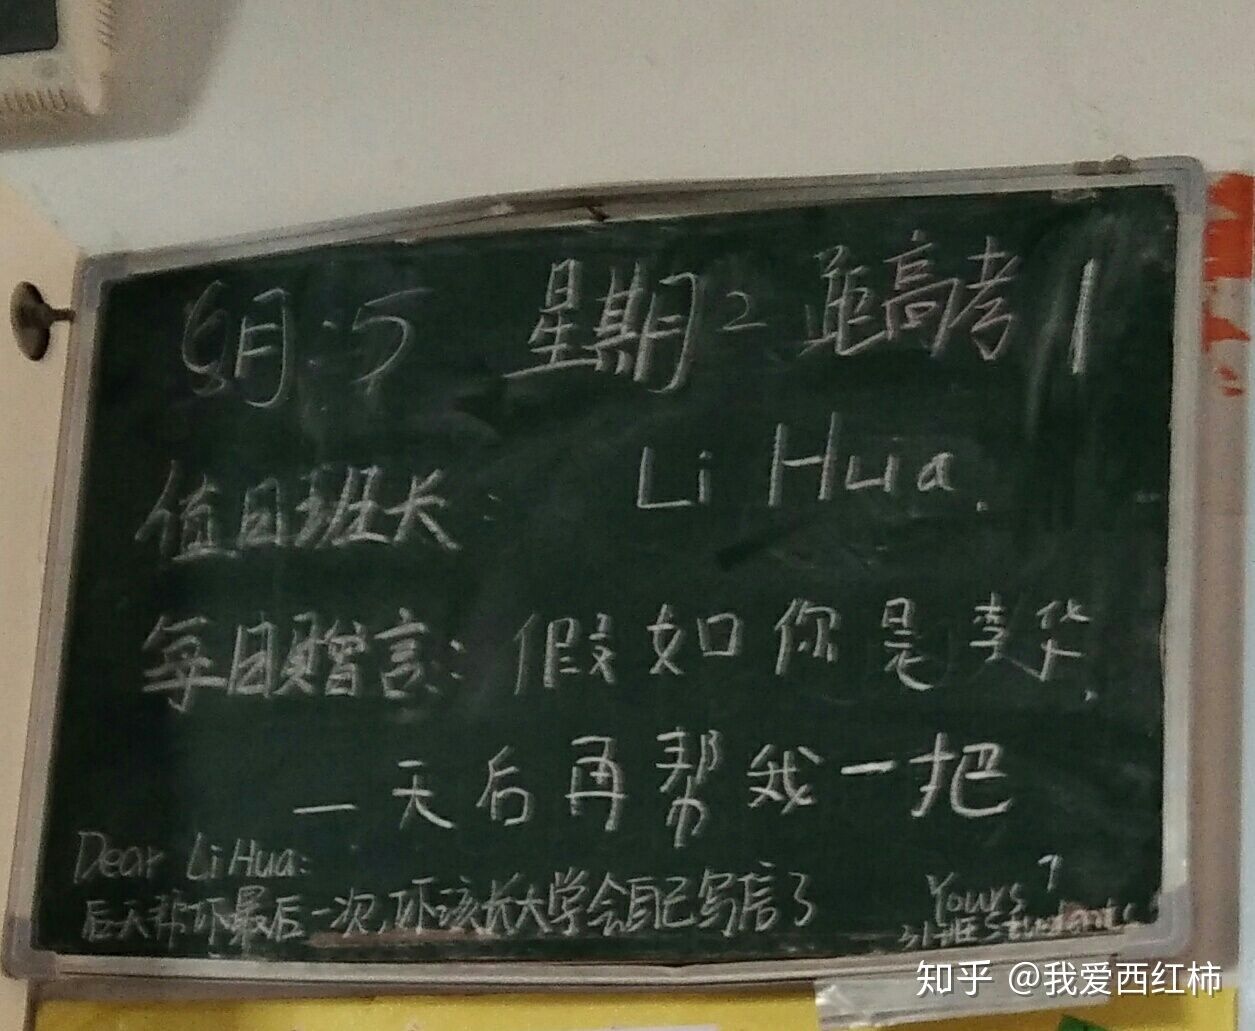 6月5 星期2 距高考1
值日班长: Li Hua.
每日赠言: 假如你是李华,
一天后再帮我一把
Dear Li Hua:
后天帮你最后一次,你该长大学会自己写信了
Yours,
31班Students
知乎 @我爱西红柿